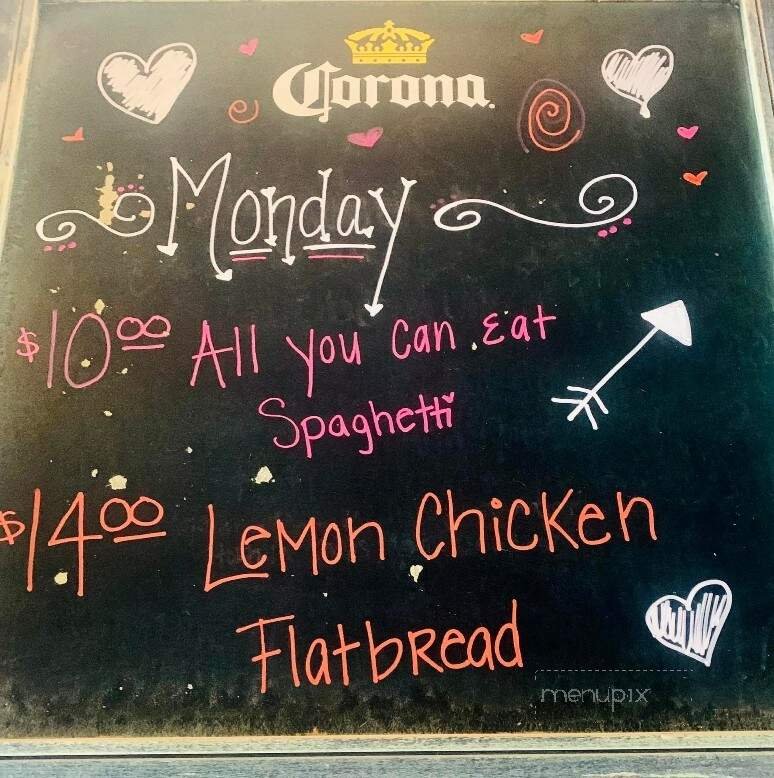 Corona.
Monday
$10.00 All you can Eat
Spaghetti
$14.00 Lemon Chicken
Flatbread
menupix